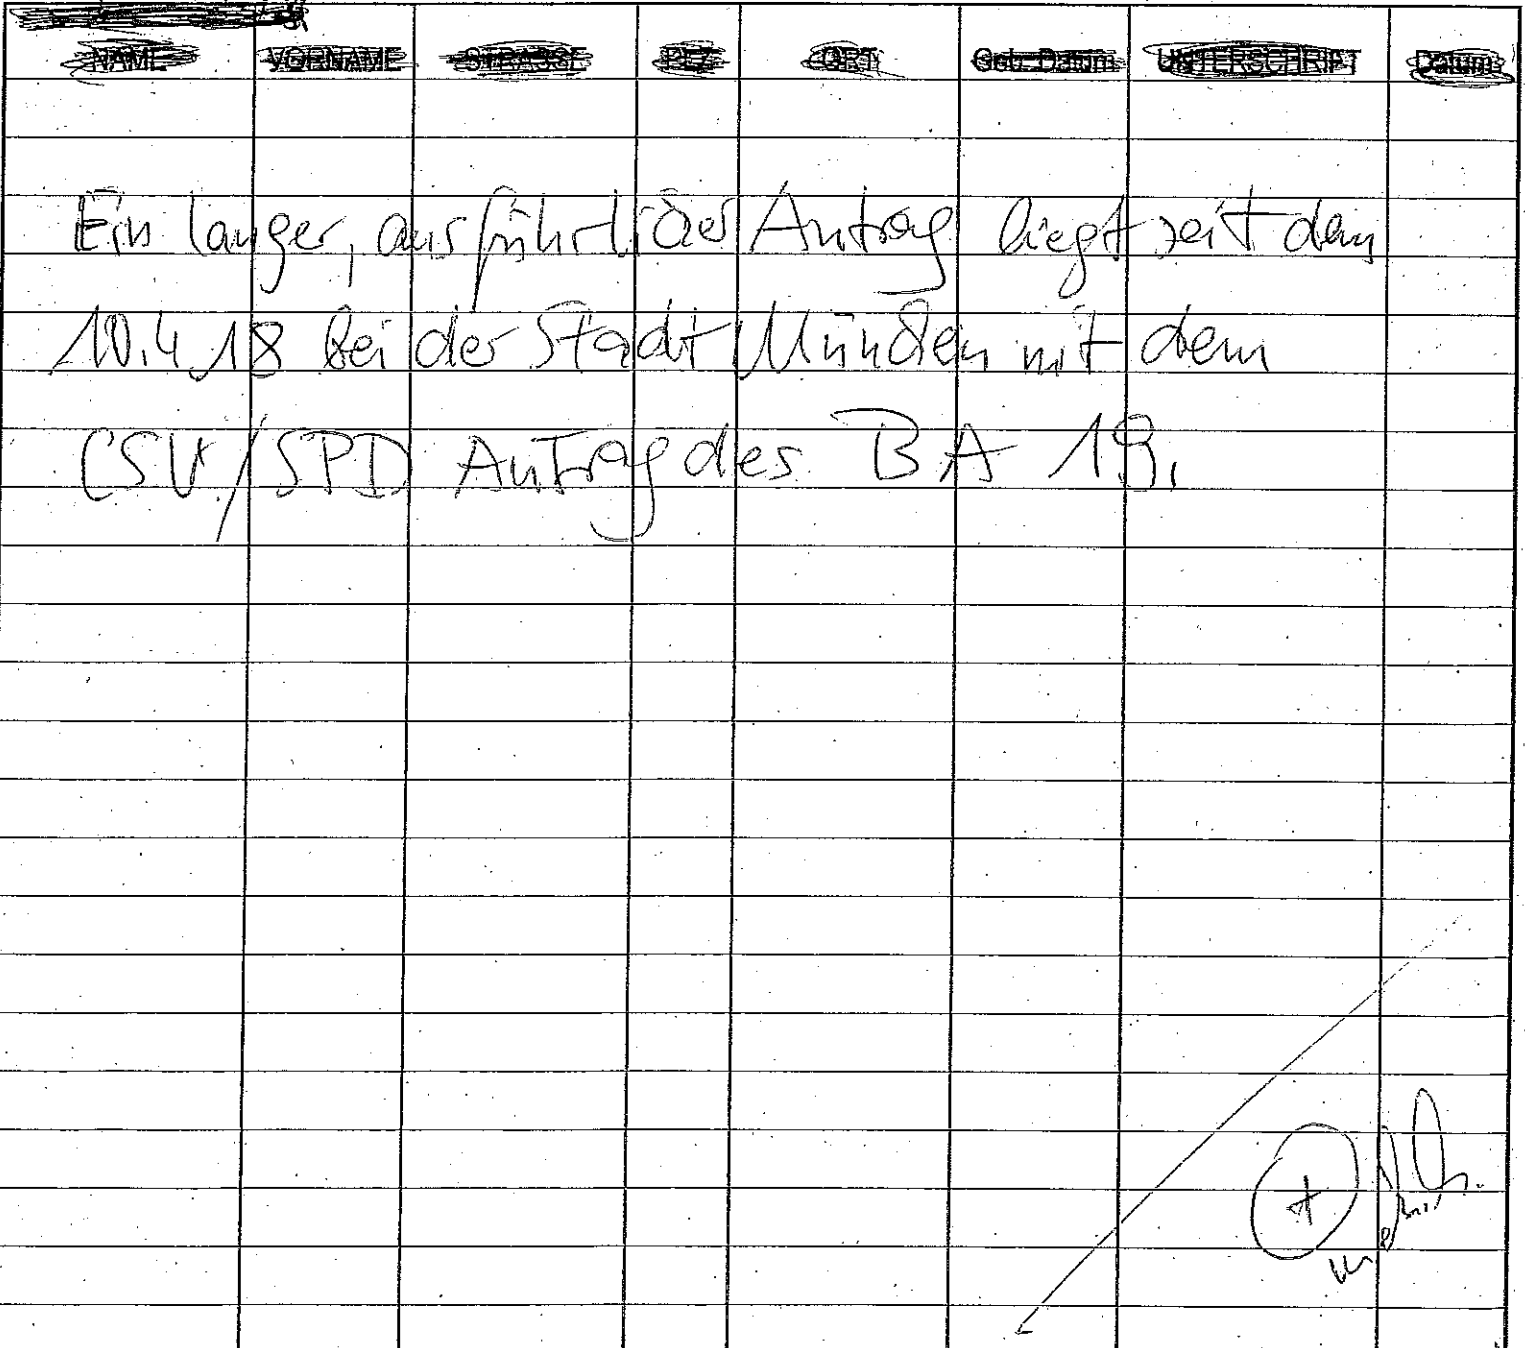 NAME VORNAME STRASSE PLZ ORT Geb. Datum UNTERSCHRIFT Datum
Ein langer, ausführlicher Antrag liegt seit dem
10.4.18 bei der Stadt München mit dem
CSU/SPD Antrag des BA 19.
+